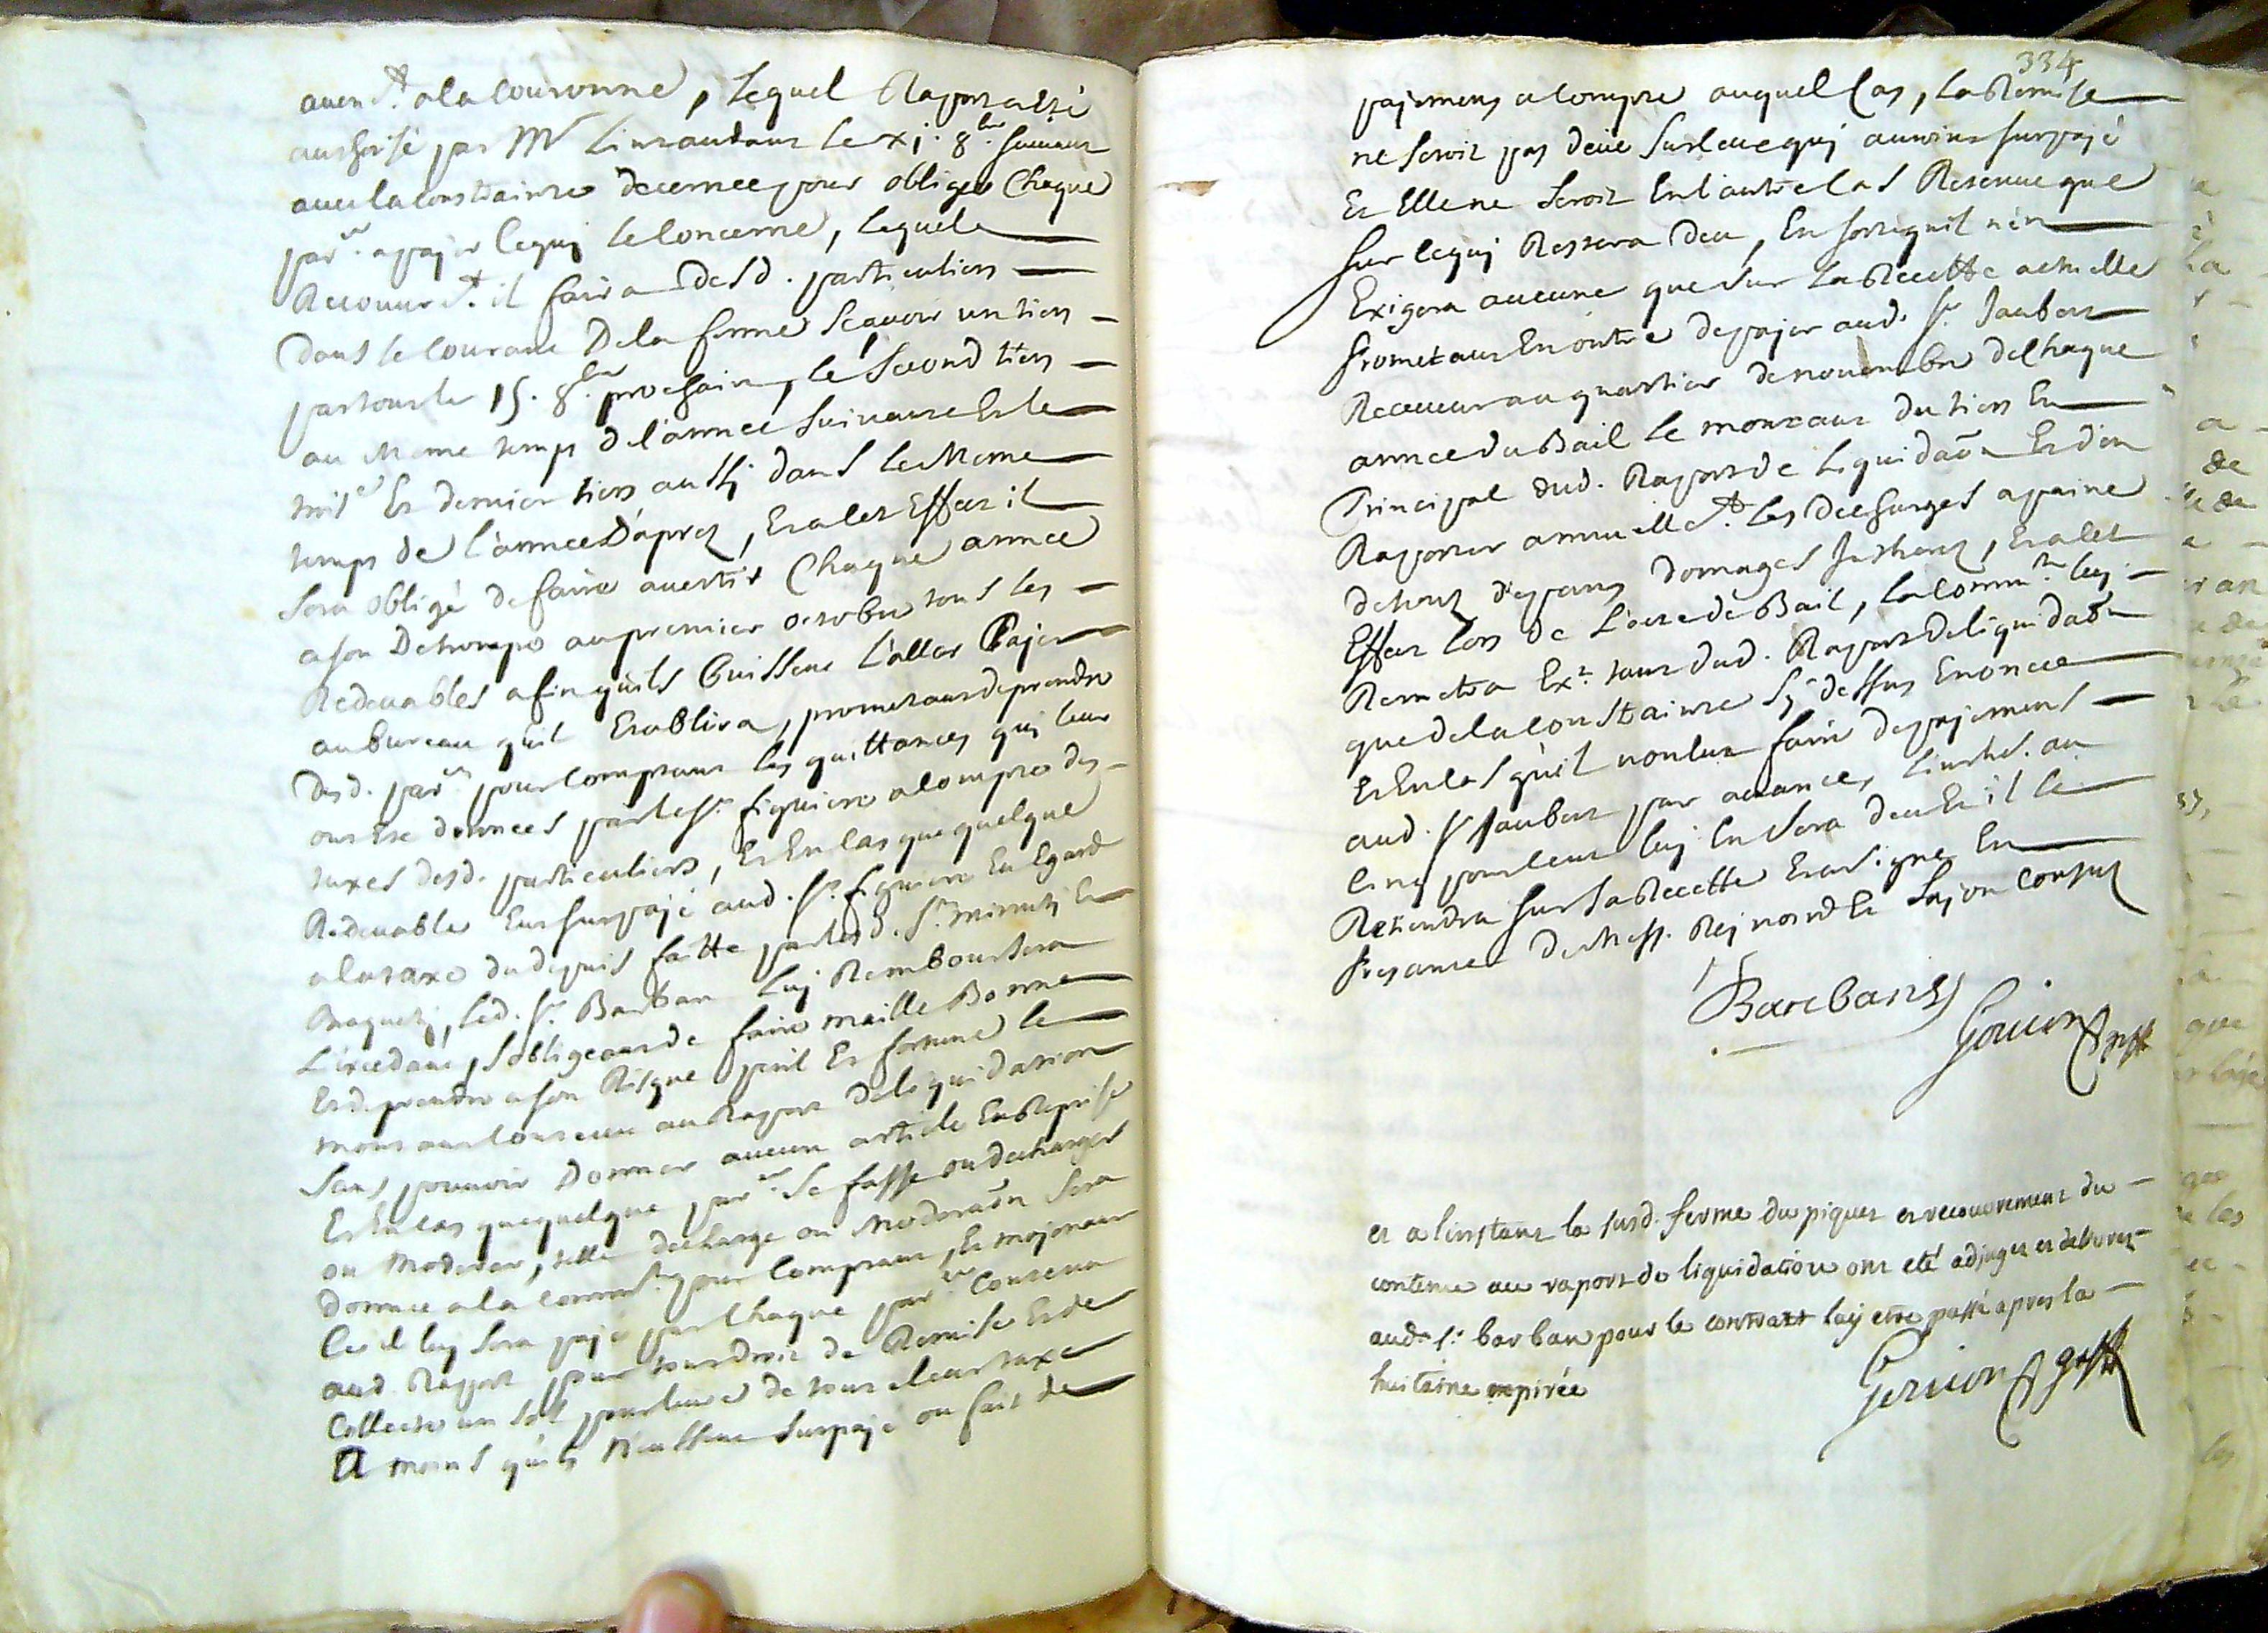 auend.t a la Couronne, Lequel Raport a Eté
authorisé par Mr Lintandant le xj. 8.bre suiuant
auec la Constrainte decernee pour obliger Chaque
par.er a payer Ce quj le Concerne, Laquele
Recouurem.t il faira desd. particuliers
Dans le Courant De la ferme Scauoir un tiers
par tout le 15. 8.bre prochain, Le Second tiers
au Meme temps de l'annee Suiuante Et le
troise Et dernier tiers aussj dans le Meme
temps de l'annee D'apres, Et a Cet Effet il
Sera obligé de faire auertir Chaque annee
a son De trompe au premier octobre tous les
Redeuables afin quils Puissent L'aller Payer
au bureau quil Etablira, prometant de prendre
desd. par.ers pour Comptant les quittances quj leur
ont Ete donnees par le Sr. figuiere a Compte des
taxes desd. particuliers, Et En Cas que quelque
Redeuable Eut surpayé aud. Sr. figuiere En Egard
a la taxe du depuis faitte par lesd. Srs minuty Et
Maquety, Led. Sr. Barban Luy Remboursera
L'excedant, S'obligeant de faire maille Bonne
Et de prendre a son Risque peril Et fortune le
montant Contenu au Raport de liquidation
Sans pouuoir Donner aucun article En Reprise
Et En Cas que quelque par.er Se fasse ou decharger
ou Moderer, telle decharge ou Moderaôn Sera
donnee a la Commté. pour Comptant, Et moyenant
Ce il luy Sera payé par Chaque par.er Contenu
aud. Raport pour tout Droit de Remise Et de
Collecte un Sol pour liure de toute leur taxe
A moins quils N'eussent Surpayé ou fait de
334
payemens a Compte auquel Cas, La Remise
ne Seroit pas deüe Sur Ce quj auroit surpayé
Et Elle ne Seroit En l'autre Cas Retenue que
Sur Ce quj Restera deu, En sorte quil n'en
Exigera aucune que Sur la Recette actuelle
Prometant En outre de payer aud. Sr. Jaubert
Receueur au quartier de nouembre de Chaque
annee du Bail le montant du tiers En
Principal dud. Raport de liquidaôn Et d'en
Raporter annuellem.t les decharges a peine
de tous depans domages Interets, Et a Cet
Effet lors de L'acte de Bail, la Commté. luy
Remetra Ext. tant dud. Raport de liquidaôn
que de la Constrainte Sy dessus Enoncee
Et En Cas quil voulut faire de payemens
aud. Sr Jaubert par auance, L'interest. au
Cinq pour Cent luy En Sera deu Et il le
Retiendra sur Sa Recette Et a Signé En
Presance de Mess. Reynard Et Lajon Consuls
Barban
et a linstant la susd. ferme du piquet et recouvrement du
contenu au raport de liquidation ont eté adjugez et deliurez
aud. sr. barban pour le contract luy etre passé apres la
huitaine expirée